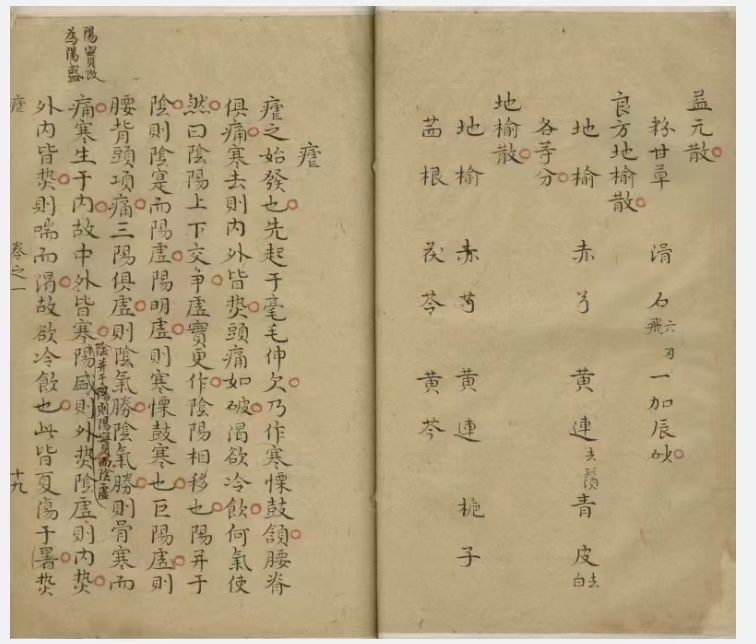 益元散
粉甘草 滑石飛六刃 一加辰砂
良方地榆散
地榆 赤芍 黄連去鬚 青皮去白
各等分
地榆散
地榆 赤芍 黄連 梔子
茜根 茯苓 黄芩
瘧
瘧之始發也先起于毫毛伸欠乃作寒慄鼓頷腰脊
俱痛寒去則内外皆𤍠頭痛如破渴欲冷飲何氣使
然曰陰陽上下交争虚實更作陰陽相移也陽并于
陰則陰寔而陽虚陽明虚則寒慄鼓寒也巨陽虚則
腰背頭項痛三陽俱虚則陰氣勝陰氣勝則骨寒而
陰并于陽則陽實而陰虚
痛寒生于内故中外皆寒陽盛則外𤍠陰虚則内𤍠
外内皆𤍠則喘而渴故欲冷飲也此皆夏傷于暑𤍠
陽實改
為陽盛
瘧 卷之一 十九